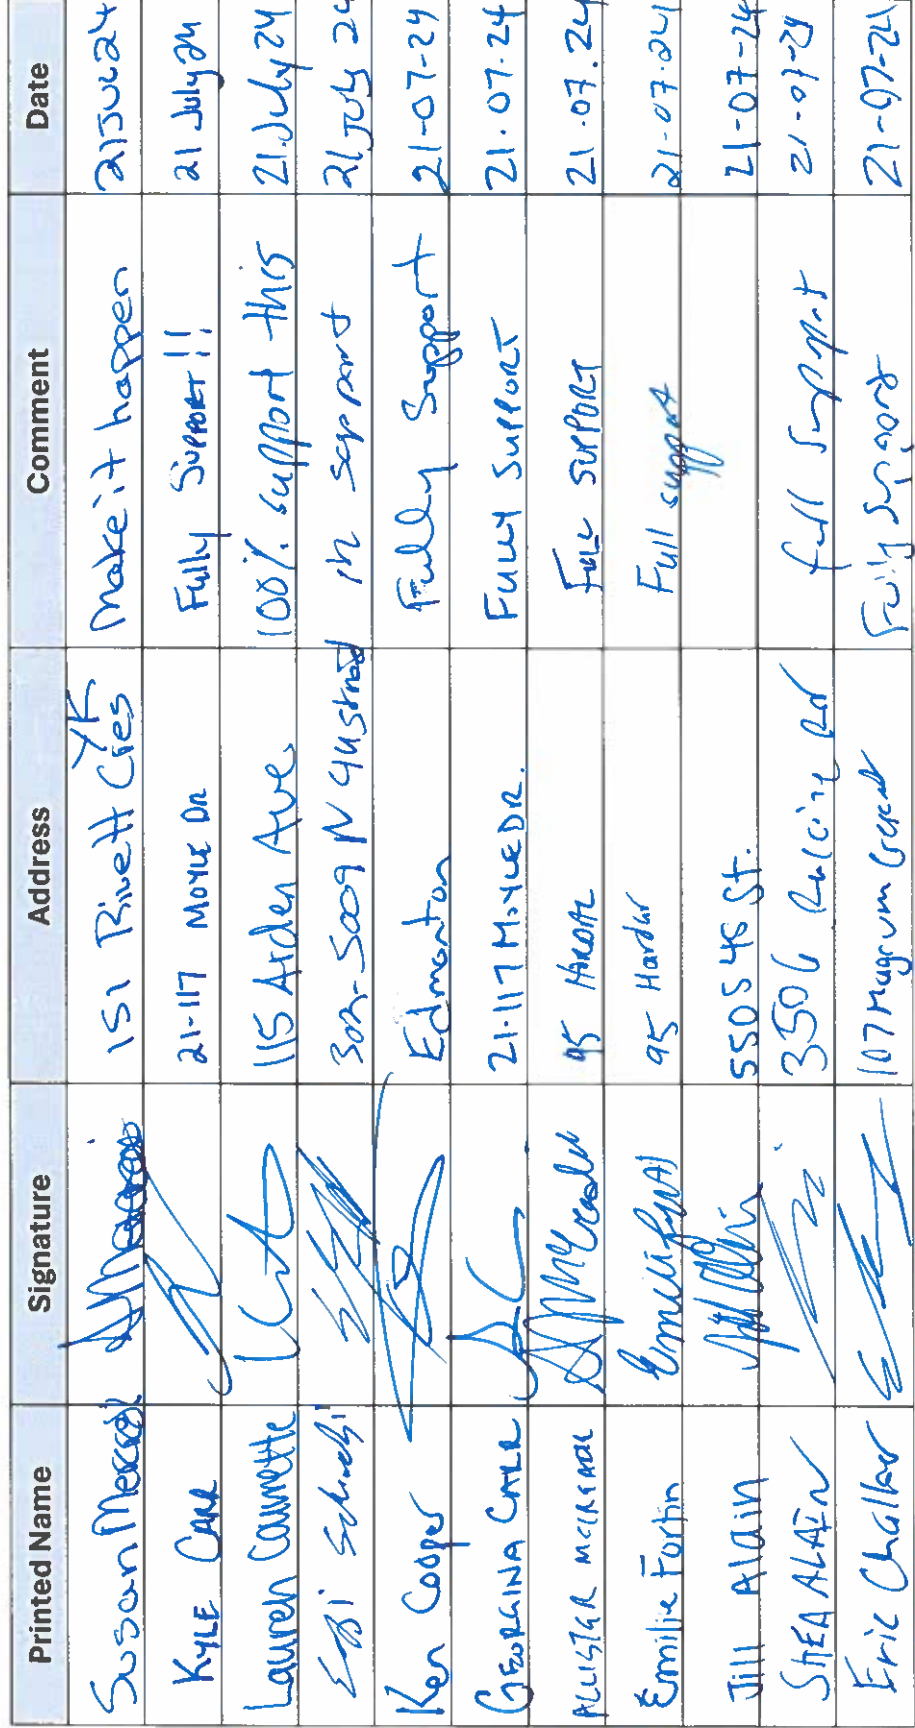 Printed Name Signature Address Comment Date
Susan 151 Rivett Cres YK Make it happen 21JUL24
KYLE CARR 21-117 MOYLE DR Fully SUPPORT!! 21 July 24
Lauren 115 Arden Ave. 100% support this 21 July 24
302-5009 N in support 21 July 24
Ken Cooper Edmonton Fully Support 21-07-24
GEORGINA CARR 21-117 MOYLE DR. FULLY SUPPORT 21.07.24
ALLISTER 95 FULL SUPPORT 21.07.24
Emilie Fortin 95 Full support 21-07-24
Jill Alain 5505 45 St. 21-07-24
SHEA ALAIN 3506 full support 21-07-24
Eric Chalker 107 Magrum Crescent Fully Support 21-07-24